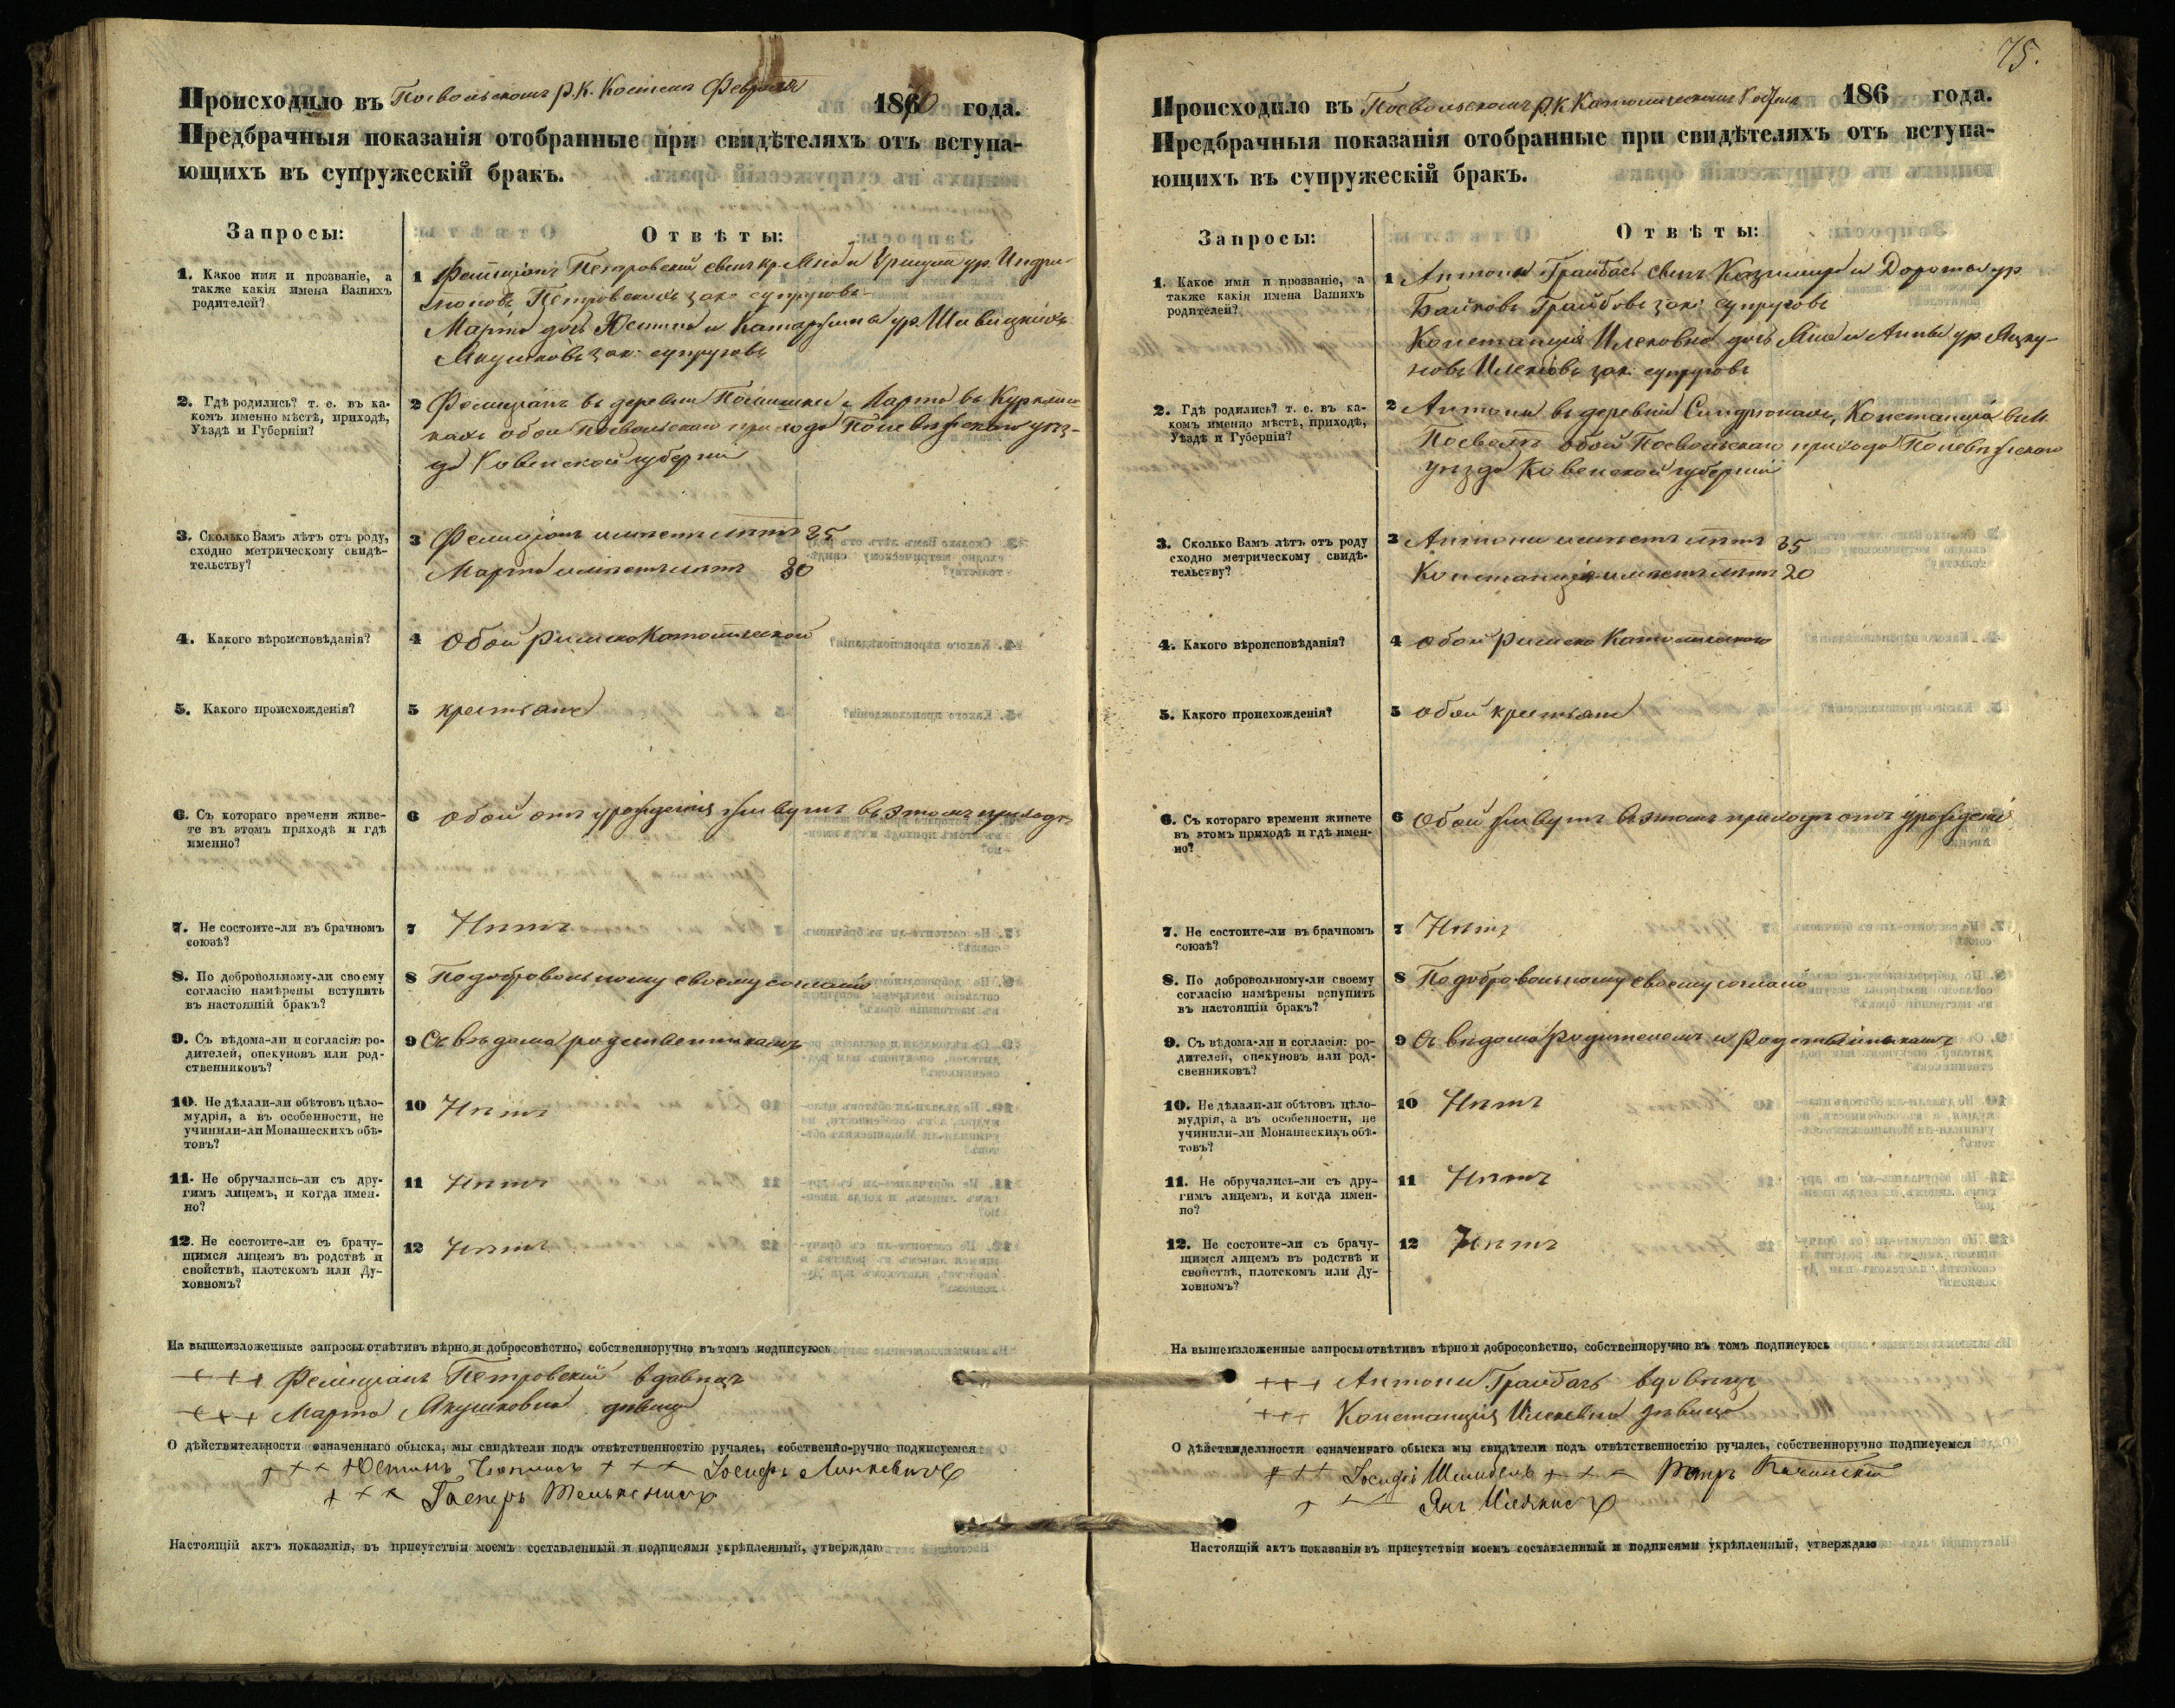 Происходило въ Посвольскомъ Р.К. Костелѣ Февраля 1870 года.
Предбрачныя показанія отобранные при свидѣтеляхъ отъ вступа-
ющихъ въ супружескій бракъ.
Запросы:
Отвѣты:
1. Какое имя и прозваніе, а
также какія имена Вашихъ
родителей?
1 Фелиціанъ Петровскій сынъ Яна и Уршули ур.
Петровскихъ зак: супруговъ
Марта дочь Юстина и Катаржины ур.
Якушковъ зак: супруговъ
2. Гдѣ родились? т. е. въ ка-
комъ именно мѣстѣ, приходѣ,
Уѣздѣ и Губерніи?
2 Фелиціанъ въ деревни Марта въ
обои Посвольскаго прихода Поневѣжскаго уѣз-
да Ковенской губерніи
3. Сколько Вамъ лѣтъ отъ роду,
сходно метрическому свидѣ-
тельству?
3 Фелиціанъ имѣетъ лѣтъ 35
Марта имѣетъ лѣтъ 30
4. Какого вѣроисповѣданія?
4 Обои Римско Католической
5. Какого происхожденія?
5 крестьяне
6. Съ котораго времени живе-
те въ этомъ приходѣ и гдѣ
именно?
6 Обои отъ урожденія живутъ въ этомъ приходѣ
7. Не состоите-ли въ брачномъ
союзѣ?
7 Нѣтъ
8. По добровольному-ли своему
согласію намѣрены вступить
въ настоящій бракъ?
8 По добровольному своему согласію
9. Съ вѣдома-ли и согласія: ро-
дителей, опекуновъ или род-
ственниковъ?
9 Съ вѣдома родственниковъ
10. Не дѣлали-ли обѣтовъ цѣло-
мудрія, а въ особенности, не
учинили-ли Монашескихъ обѣ-
товъ?
10 Нѣтъ
11. Не обручались-ли съ дру-
гимъ лицемъ, и когда имен-
но?
11 Нѣтъ
12. Не состоите-ли съ брачу-
щимся лицемъ въ родствѣ и
свойствѣ, плотскомъ или Ду-
ховномъ?
12 Нѣтъ
На вышеизложенные запросы отвѣтивъ вѣрно и добросовѣстно, собственноручно въ томъ подписуюсь
+++ Фелиціанъ Петровскій вдовецъ
+++ Марта Якушковна дѣвица
О дѣйствительности означеннаго обыска, мы свидѣтели подъ отвѣтственностію ручаясь, собственно-ручно подписуемся
+++ Юстинъ +++ Іосифъ
+++ Гасперъ
Настоящій актъ показанія, въ присутствіи моемъ составленный и подписями укрѣпленный, утверждаю
75.
Происходило въ Посвольскомъ Р.К Католическомъ Костелѣ 186 года.
Предбрачныя показанія отобранные при свидѣтеляхъ отъ вступа-
ющихъ въ супружескій бракъ.
Запросы:
Отвѣты:
1. Какое имя и прозваніе, а
также какія имена Вашихъ
родителей?
1 Антони Грайбасъ сынъ Казимира и Дороты ур.
Грайбовъ зак: супруговъ
Констанція Илековна дочь Яна и Анны ур. Яцку-
новъ Илековъ зак: супруговъ
2. Гдѣ родились? т. е. въ ка-
комъ именно мѣстѣ, приходѣ,
Уѣздѣ и Губерніи?
2 Антони въ деревни Констанція въ м.
Посволѣ обои Посвольскаго прихода Поневѣжскаго
уѣзда Ковенской губерніи
3. Сколько Вамъ лѣтъ отъ роду
сходно метрическому свидѣ-
тельству?
3 Антони имѣетъ лѣтъ 35
Констанція имѣетъ лѣтъ 20
4. Какого вѣроисповѣданія?
4 Обои Римско Католическаго
5. Какого происхожденія?
5 Обои крестьяне
6. Съ котораго времени живете
въ этомъ приходѣ и гдѣ имен-
но?
6 Обои живутъ въ этомъ приходѣ отъ урожденія
7. Не состоите-ли въ брачномъ
союзѣ?
7 Нѣтъ
8. По добровольному-ли своему
согласію намѣрены вспупить
въ настоящій бракъ?
8 По добровольному своему согласію
9. Съ вѣдома-ли и согласія: ро-
дителей, опекуновъ или род-
свенниковъ?
9 Съ вѣдома родителемъ и
10. Не дѣлали-ли обѣтовъ цѣло-
мудрія, а въ особенности, не
учинили-ли Монашескихъ обѣ-
товъ?
10 Нѣтъ
11. Не обручались-ли съ дру-
гимъ лицемъ, и когда имен-
по?
11 Нѣтъ
12. Не состоите-ли съ брачу-
щимся лицемъ въ родствѣ и
свойствѣ, плотскомъ или Ду-
ховномъ?
12 Нѣтъ
На вышеизложенные запросы отвѣтивъ вѣрно и добросовѣстно, собственноручно въ томъ подписуюсь
+++ Антони Грайбасъ вдовецъ
+++ Констанція Илековна дѣвица
О дѣйствидельности означеннаго обыска мы свидѣтели подъ отвѣтственностію ручаясь, собственноручно подписуемся
+++ Іосифъ +++ Петръ
+ Янъ
Настоящій актъ показанія въ присутствіи моемъ составленный и подписями укрѣпленный, утверждаю